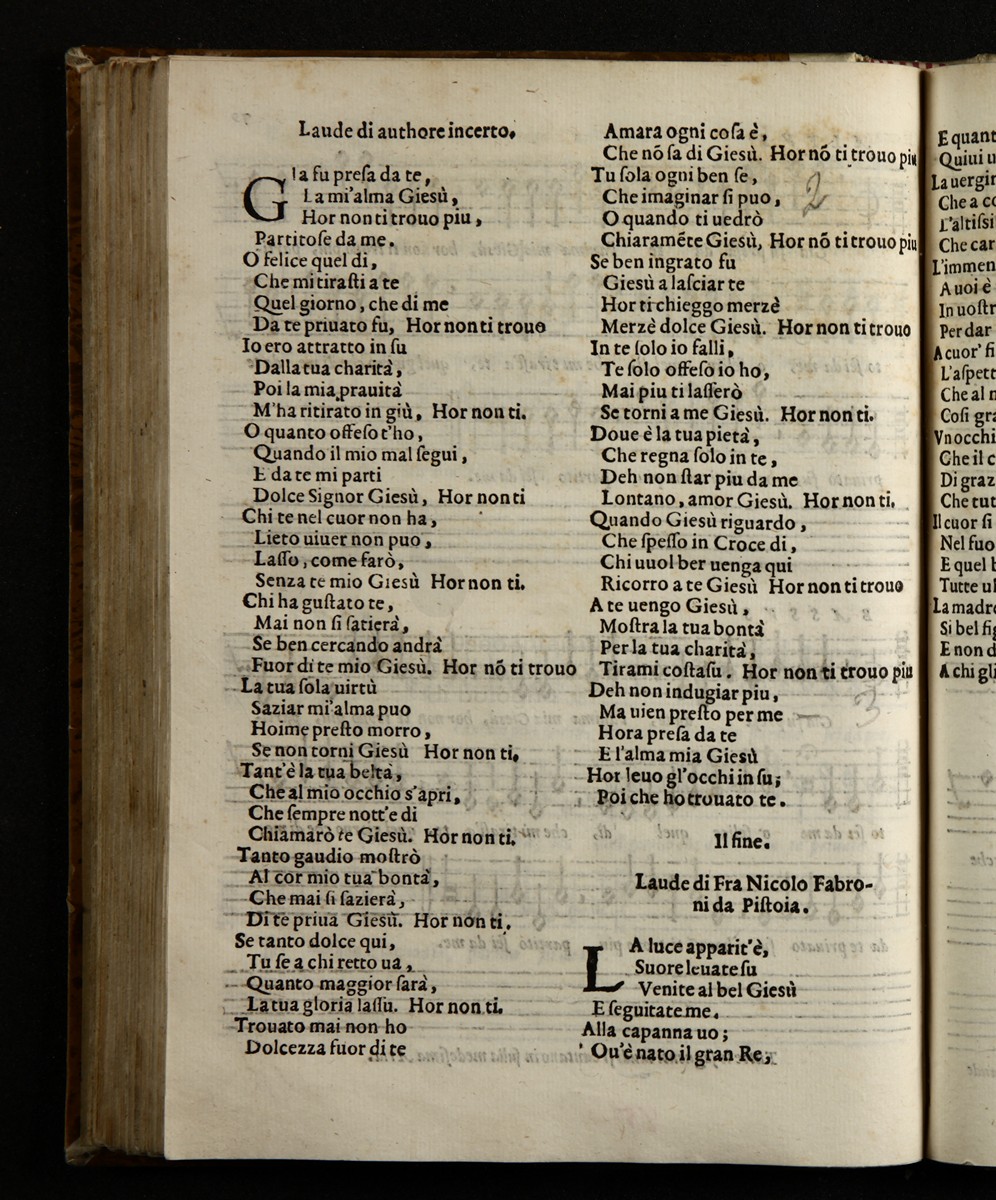 Laude di authore incerto.
GIa fu preſa da te,
La mi'alma Gieſù,
Hor non ti trouo piu,
Partitoſe da me.
O felice quel di,
Che mi tiraſti a te
Quel giorno, che di me
Da te priuato fu, Hor non ti trouo
Io ero attratto in ſu
Dalla tua charità,
Poi la mia prauità
M'ha ritirato in giù, Hor non ti.
O quanto offeſo t'ho,
Quando il mio mal ſegui,
E da te mi parti
Dolce Signor Gieſù, Hor non ti
Chi te nel cuor non ha,
Lieto uiuer non puo,
Laſſo, come farò,
Senza te mio Gieſù Hor non ti.
Chi ha guſtato te,
Mai non ſi ſatierà,
Se ben cercando andrà
Fuor di te mio Gieſù. Hor nõ ti trouo
La tua ſola uirtù
Saziar mi'alma puo
Hoime preſto morro,
Se non torni Gieſù Hor non ti.
Tant'è la tua beltà,
Che al mio occhio s'apri,
Che ſempre nott'e di
Chiamarò te Gieſù. Hor non ti.
Tanto gaudio moſtrò
Al cor mio tua bontà,
Che mai ſi ſazierà,
Di te priua Gieſù. Hor non ti.
Se tanto dolce qui,
Tu ſe a chi retto ua,
Quanto maggior ſarà,
La tua gloria laſſù. Hor non ti.
Trouato mai non ho
Dolcezza fuor di te
Amara ogni coſa è,
Che nõ ſa di Gieſù. Hor nõ ti trouo piu
Tu ſola ogni ben ſe,
Che imaginar ſi puo,
O quando ti uedrò
Chiaramẽte Gieſù, Hor nõ ti trouo piu
Se ben ingrato fu
Gieſù a laſciar te
Hor ti chieggo merzè
Merzè dolce Gieſù. Hor non ti trouo
In te ſolo io falli,
Te ſolo offeſo io ho,
Mai piu ti laſſerò
Se torni a me Gieſù. Hor non ti.
Doue è la tua pietà,
Che regna ſolo in te,
Deh non ſtar piu da me
Lontano, amor Gieſù. Hor non ti.
Quando Gieſù riguardo,
Che ſpeſſo in Croce di,
Chi uuol ber uenga qui
Ricorro a te Gieſù Hor non ti trouo
A te uengo Gieſù,
Moſtra la tua bontà
Per la tua charità,
Tirami coſtaſu. Hor non ti trouo piu
Deh non indugiar piu,
Ma uien preſto per me
Hora preſa da te
E l'alma mia Gieſù
Hor leuo gl'occhi in ſu;
Poi che ho trouato te.
Il fine.
Laude di Fra Nicolo Fabro-
ni da Piſtoia.
LA luce apparit'è,
Suore leuate ſu
Venite al bel Gieſù
E ſeguitate me.
Alla capanna uo;
Ou'è nato il gran Re,
E quant
Quiui u
La uergin
Che a co
L'altiſsi
Che car
L'immen
A uoi è
In uoſtr
Per dar
A cuor' ſi
L'aſpett
Che al n
Coſi gra
Vn occhi
Che il c
Di graz
Che tut
Il cuor ſi
Nel ſuo
E quel b
Tutte ul
La madre
Si bel fig
E non d
A chi gli